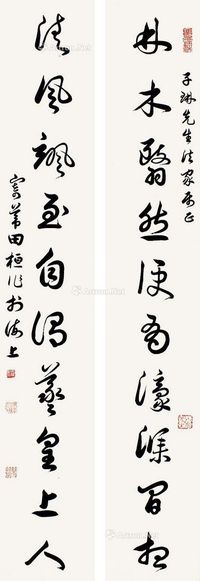 林木翳然便有濠濮間想
子琳先生法家屬正
清風颯至自謂羲皇上人
寄葦田桓作於海上